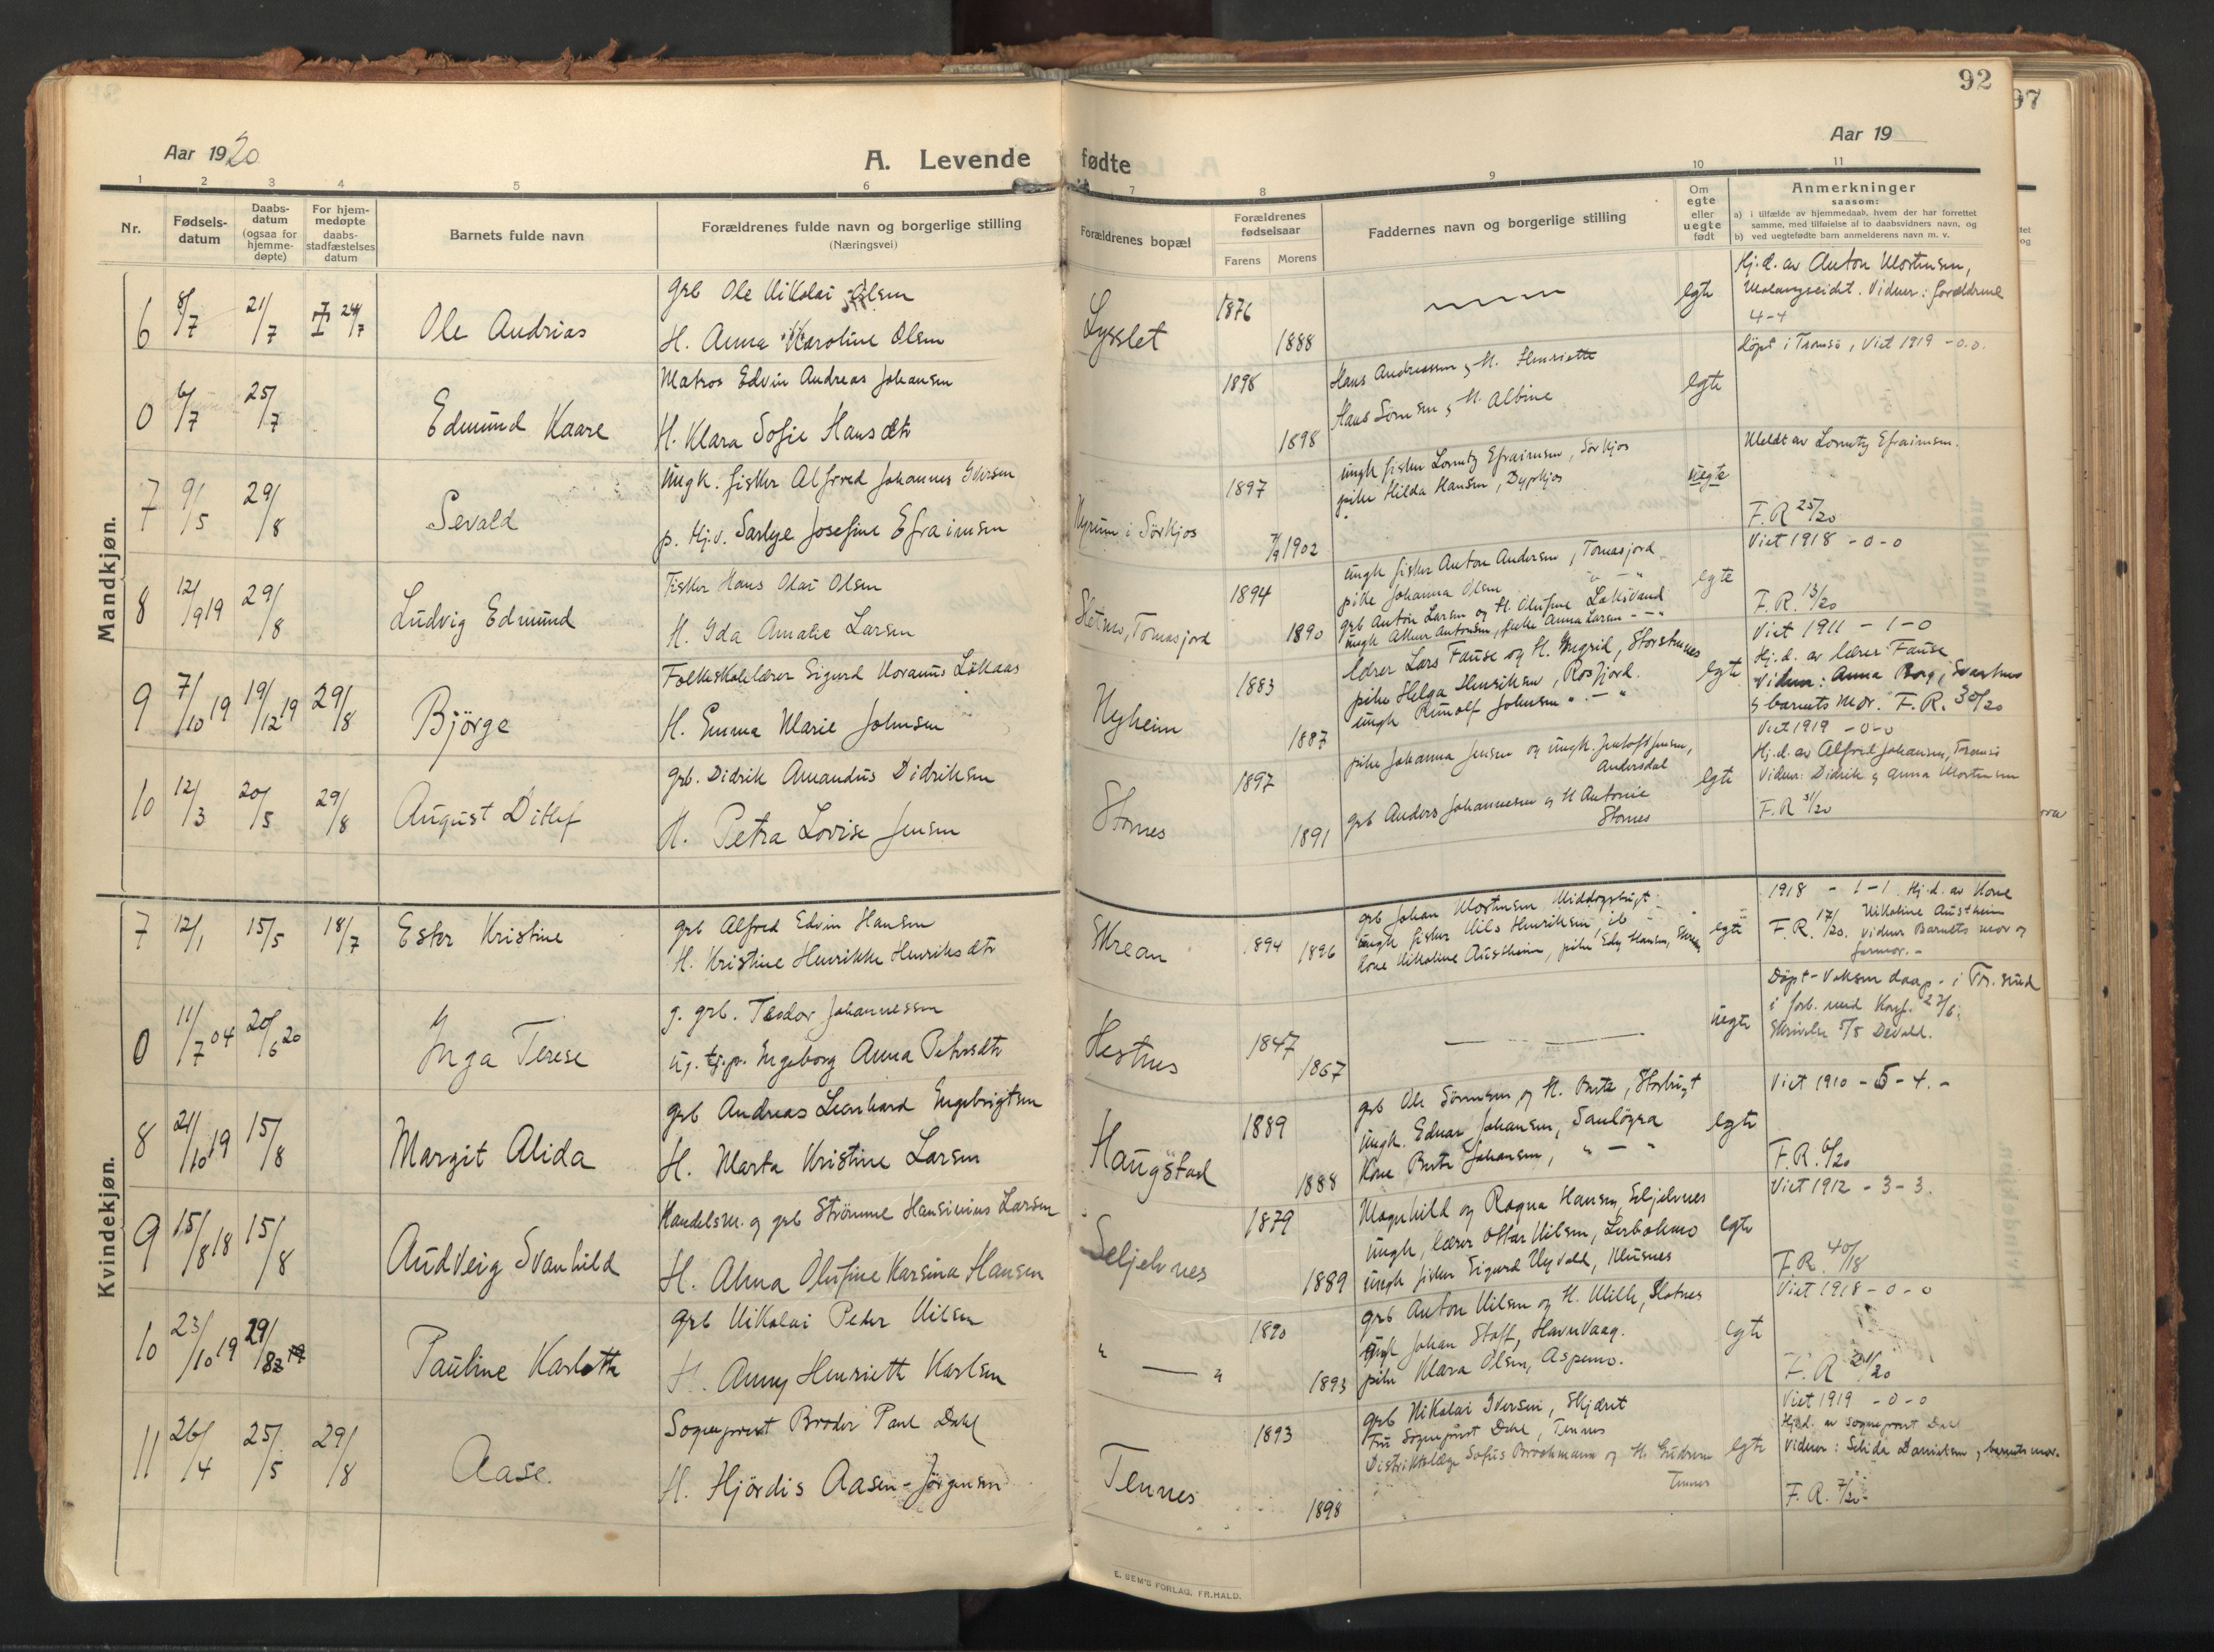 92
97
Aar 1920
A. Levende fødte
Aar 19
1 2 3 4 5 6 7 8 9 10 11
Nr.
Fødsels-datum
Daabs-datum (ogsaa for hjemme-døpte)
For hjem-medøpte daabs-stadfæstelses datum
Barnets fulde navn
Forældrenes fulde navn og borgerlige stilling
(Næringsvei)
Forældrenes bopæl
Forældrenes fødselsaar
Farens Morens
Faddernes navn og borgerlige stilling
Om egte eller uegte født
Anmerkninger
saasom:
a) i tilfælde av hjemmedaab, hvem der har forrettet samme, med tilføielse af to daabsvidners navn, og
b) ved uegtefødte barn anmelderens navn m. v.
Mandkjøn.
6 8/7 21/7 24/7 Ole Andrias
grb Ole Nikolai Olsen
H. Anna Karoline Olsen
1876 1888
egte
Hj. d. av Anton Mortensen,
Malangseidet. Vidner: forældrene
4-4
0 6/7 25/7 Edmund Kaare
Matros Edvin Andreas Johansen
H. Klara Sofie Hansdtr
1898 1898
Hans Andreassen & H. Henriette
Hans Sörensen & H. Albine
egte
döpt i Tromsö, Viet 1919 -0.0.
7 9/5 29/8 Sevald
Ungk. fisker Alfred Johannes Iversen
p. Hj.v. Sarlye Josefine Efraimsen
Nyrum i Sörkjos
1897 1902
ungk fisker Lorentz Efraimsen, Sörkjos
pike Hilda Hansen, Dypkjos
uegte
Meldt av Lorentz Efraimsen.
F.R 25/20
8 12/9 19 29/8 Ludvig Edmund
Fisker Hans Olai Olsen
H. Ida Amalie Larsen
Sletmo, Tomasjord
1894 1890
ungk fisker Anton Andersen, Tomasjord
pike Johanna Olsen " - "
grb Anton Larsen og H. Olufine Laksvand
ungk Antonsen, pike Anna Larsen - " -
egte
Viet 1918 -0-0
F.R. 13/20
9 7/10 19 19/12 19 29/8 Björge
Folkeskolelærer Sigurd Lökaas
H. Emma Marie Johnsen
Nyheim
1883 1887
lærer Lars Fause og H. Ingrid, Storsteinnes
pike Helga Henriksen, Rosfjord.
ungk Runolf Johnsen " - "
egte
Viet 1911 - 1-0
Hj. d. av lærer Fause
Vidner: Anna Borg, Svartnes
& barnets mor. F.R. 30/20
10 12/3 20/5 29/8 August Ditlef
grb. Didrik Amandus Didriksen
H. Petra Lovise Jensen
Stornes
1897 1891
pike Johanna Jensen og ungk. Jentoft Jensen,
Andersdal
grb Anders Johannesen & H Antonie
Stornes
egte
Viet 1919 -0-0
Hj. d. av Alfred Johansen, Tromsö
Vidner: Didrik & Anna Mortensen
F.R 31/20
Kvindekjøn.
7 12/1 15/5 18/7 Ester Kristine
grb Alfred Edvin Hansen
H. Kristine Henrikke Henriksdtr
Skrean
1894 1896
grb Johan Mortensen Middagsbugt
ungk fisker Nils Henriksen, ib
kone Nikoline Austheim, pike Edy Hansen, Skrean
egte
1918 - 1-1 Hj. d. av Kone
Nikoline Austheim
F.R. 17/20. vidner Barnets mor og
farmor. -
0 11/7 04 20/6 20 Inga Terese
g. grb. Teodor Johannessen
ug. tj.p. Ingeborg Anna Petersdtr
Hestnes
1847 1867
uegte
Döpt - Voksen daap - i Tr. sund
i forb. med Konf. 27/6.
Skrivelse 5/8 Devold.
8 21/10 19 15/8 Margit Alida
grb Andreas Leonhard Engebrigtsen
H. Marta Kristine Larsen
Haugstad
1889 1888
grb Ole Sörensen og H. Berte, Storbugt
ungk. Edvar Johansen, Saulögra
Kone Berte Johansen, " - "
egte
Viet 1910 - 5-4. -
F.R. 6/20
9 15/8 18 15/8 Audveig Svanhild
Handelsm. og grb Strömme Hansinius Larsen
H. Alma Olufine Karsina Hansen
Seljelvnes
1879 1889
Magnhild og Ragna Hansen, Seljelvnes
ungk, lærer Ottar Nilsen,
ungk fisker Sigurd Nyvold,
egte
Viet 1912 - 3-3.
F.R. 40/18
10 23/10 19 29/8 Pauline Karlotte
grb Nikolai Peder Nilsen
H. Anny Henriette Karlsen
" — "
1890 1893
grb Anton Nilsen og H. Mille, Slotnes
ungk Johan Staff, Havnvaag.
pike Klara Olsen, Aspemo.
egte
Viet 1918 - 0-0
F.R 21/20
11 26/4 25/5 29/8 Aase.
Sogneprest Broder Paul Dahl
H. Hjördis Aasen-Jörgensen
Tennes
1893 1898
grb Nikolai Iversen, Skjæret
Fru Sogneprest Dahl, Tennes
Distriktslæge Sofus Brochmann og H. Gudrun
Tennes
egte
Viet 1919 -0-0
Hj.d. av sogneprest Dahl
Vidner: Selida Danielsen & barnets mor.
F.R. 7/20
E. SEM'S FORLAG, FR.HALD.